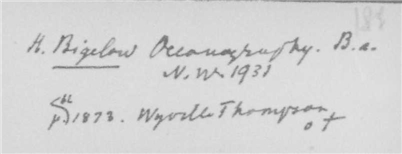 183
H. Bigelow Oceanography. B.a.
N.W. 1931
1873. Wyville Thompson